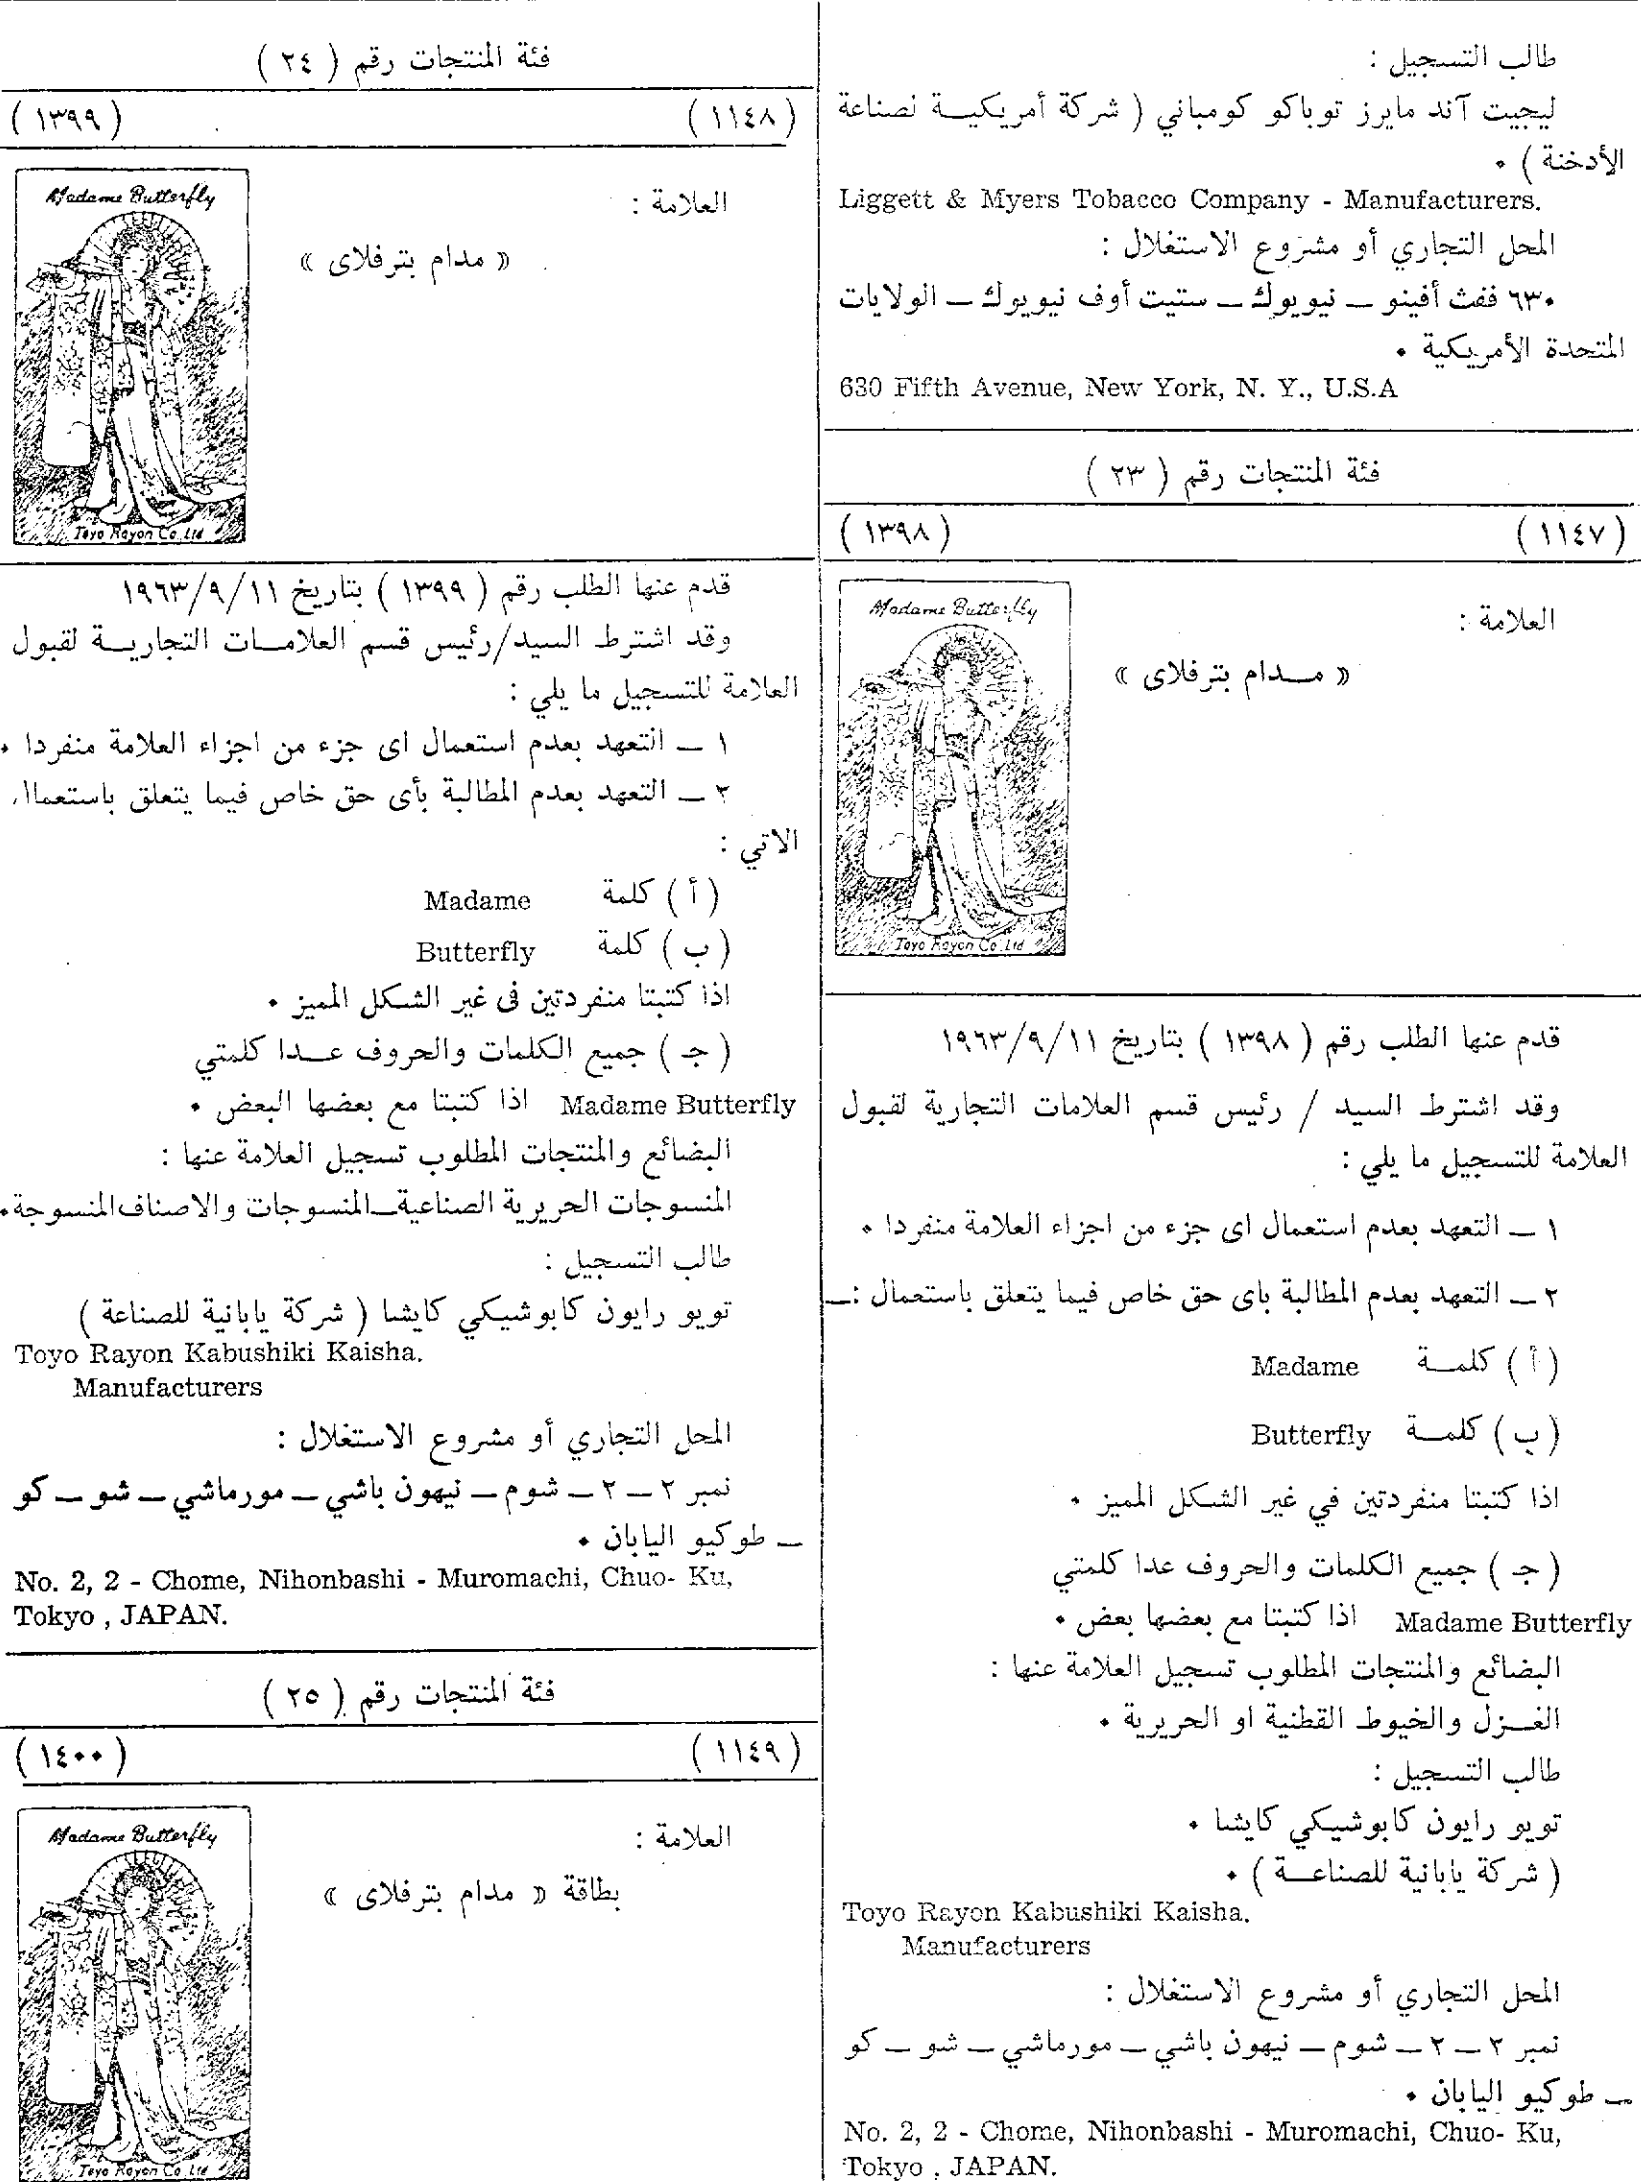 طالب التسجيل :
ليجيت آند مايرز توباكو كومباني ( شركة أمريكية لصناعة
الأدخنة ) .
Liggett & Myers Tobacco Company - Manufacturers.
المحل التجاري أو مشروع الاستغلال :
٦٣٠ ففث أفينو ــ نيويوك ــ ستيت أوف نيويوك ــ الولايات
المتحدة الأمريكية .
630 Fifth Avenue, New York, N. Y., U.S.A
فئة المنتجات رقم ( ٢٣ )
( ١١٤٧ ) ( ١٣٩٨ )
العلامة :
« مدام بترفلاى »
Madame Butterfly
Toyo Rayon Co. Ltd
قدم عنها الطلب رقم ( ١٣٩٨ ) بتاريخ ١٩٦٣/٩/١١
وقد اشترط السيد / رئيس قسم العلامات التجارية لقبول
العلامة للتسجيل ما يلي :
١ ــ التعهد بعدم استعمال اى جزء من اجزاء العلامة منفردا .
٢ ــ التعهد بعدم المطالبة باى حق خاص فيما يتعلق باستعمال :ــ
( أ ) كلمة Madame
( ب ) كلمة Butterfly
اذا كتبتا منفردتين في غير الشكل المميز .
( جـ ) جميع الكلمات والحروف عدا كلمتي
Madame Butterfly اذا كتبتا مع بعضها بعض .
البضائع والمنتجات المطلوب تسجيل العلامة عنها :
الغزل والخيوط القطنية او الحريرية .
طالب التسجيل :
تويو رايون كابوشيكي كايشا .
( شركة يابانية للصناعة ) .
Toyo Rayon Kabushiki Kaisha.
Manufacturers
المحل التجاري أو مشروع الاستغلال :
نمبر ٢ ــ ٢ ــ شوم ــ نيهون باشي ــ مورماشي ــ شو ــ كو
ــ طوكيو اليابان .
No. 2, 2 - Chome, Nihonbashi - Muromachi, Chuo- Ku,
Tokyo , JAPAN.
فئة المنتجات رقم ( ٢٤ )
( ١١٤٨ ) ( ١٣٩٩ )
العلامة :
« مدام بترفلاى »
Madame Butterfly
Toyo Rayon Co. Ltd
قدم عنها الطلب رقم ( ١٣٩٩ ) بتاريخ ١٩٦٣/٩/١١
وقد اشترط السيد/رئيس قسم العلامات التجارية لقبول
العلامة للتسجيل ما يلي :
١ ــ التعهد بعدم استعمال اى جزء من اجزاء العلامة منفردا .
٢ ــ التعهد بعدم المطالبة بأى حق خاص فيما يتعلق باستعمال
الاتي :
( أ ) كلمة Madame
( ب ) كلمة Butterfly
اذا كتبتا منفردتين فى غير الشكل المميز .
( جـ ) جميع الكلمات والحروف عدا كلمتي
Madame Butterfly اذا كتبتا مع بعضها البعض .
البضائع والمنتجات المطلوب تسجيل العلامة عنها :
المنسوجات الحريرية الصناعية ــ المنسوجات والاصناف المنسوجة .
طالب التسجيل :
تويو رايون كابوشيكي كايشا ( شركة يابانية للصناعة )
Toyo Rayon Kabushiki Kaisha.
Manufacturers
المحل التجاري أو مشروع الاستغلال :
نمبر ٢ ــ ٢ ــ شوم ــ نيهون باشي ــ مورماشي ــ شو ــ كو
ــ طوكيو اليابان .
No. 2, 2 - Chome, Nihonbashi - Muromachi, Chuo- Ku,
Tokyo , JAPAN.
فئة المنتجات رقم ( ٢٥ )
( ١١٤٩ ) ( ١٤٠٠ )
العلامة :
بطاقة « مدام بترفلاى »
Madame Butterfly
Toyo Rayon Co. Ltd